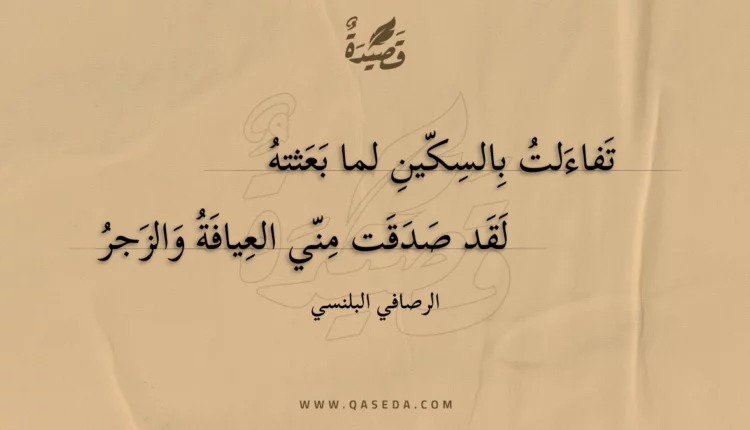 قَصِيْدَةٌ
تَفاءَلتُ بِالسِكّينِ لما بَعَثتهُ
لَقَد صَدَقَت مِنّي العِيافَةُ وَالزَجرُ
الرصافي البلنسي
WWW.QASEDA.COM